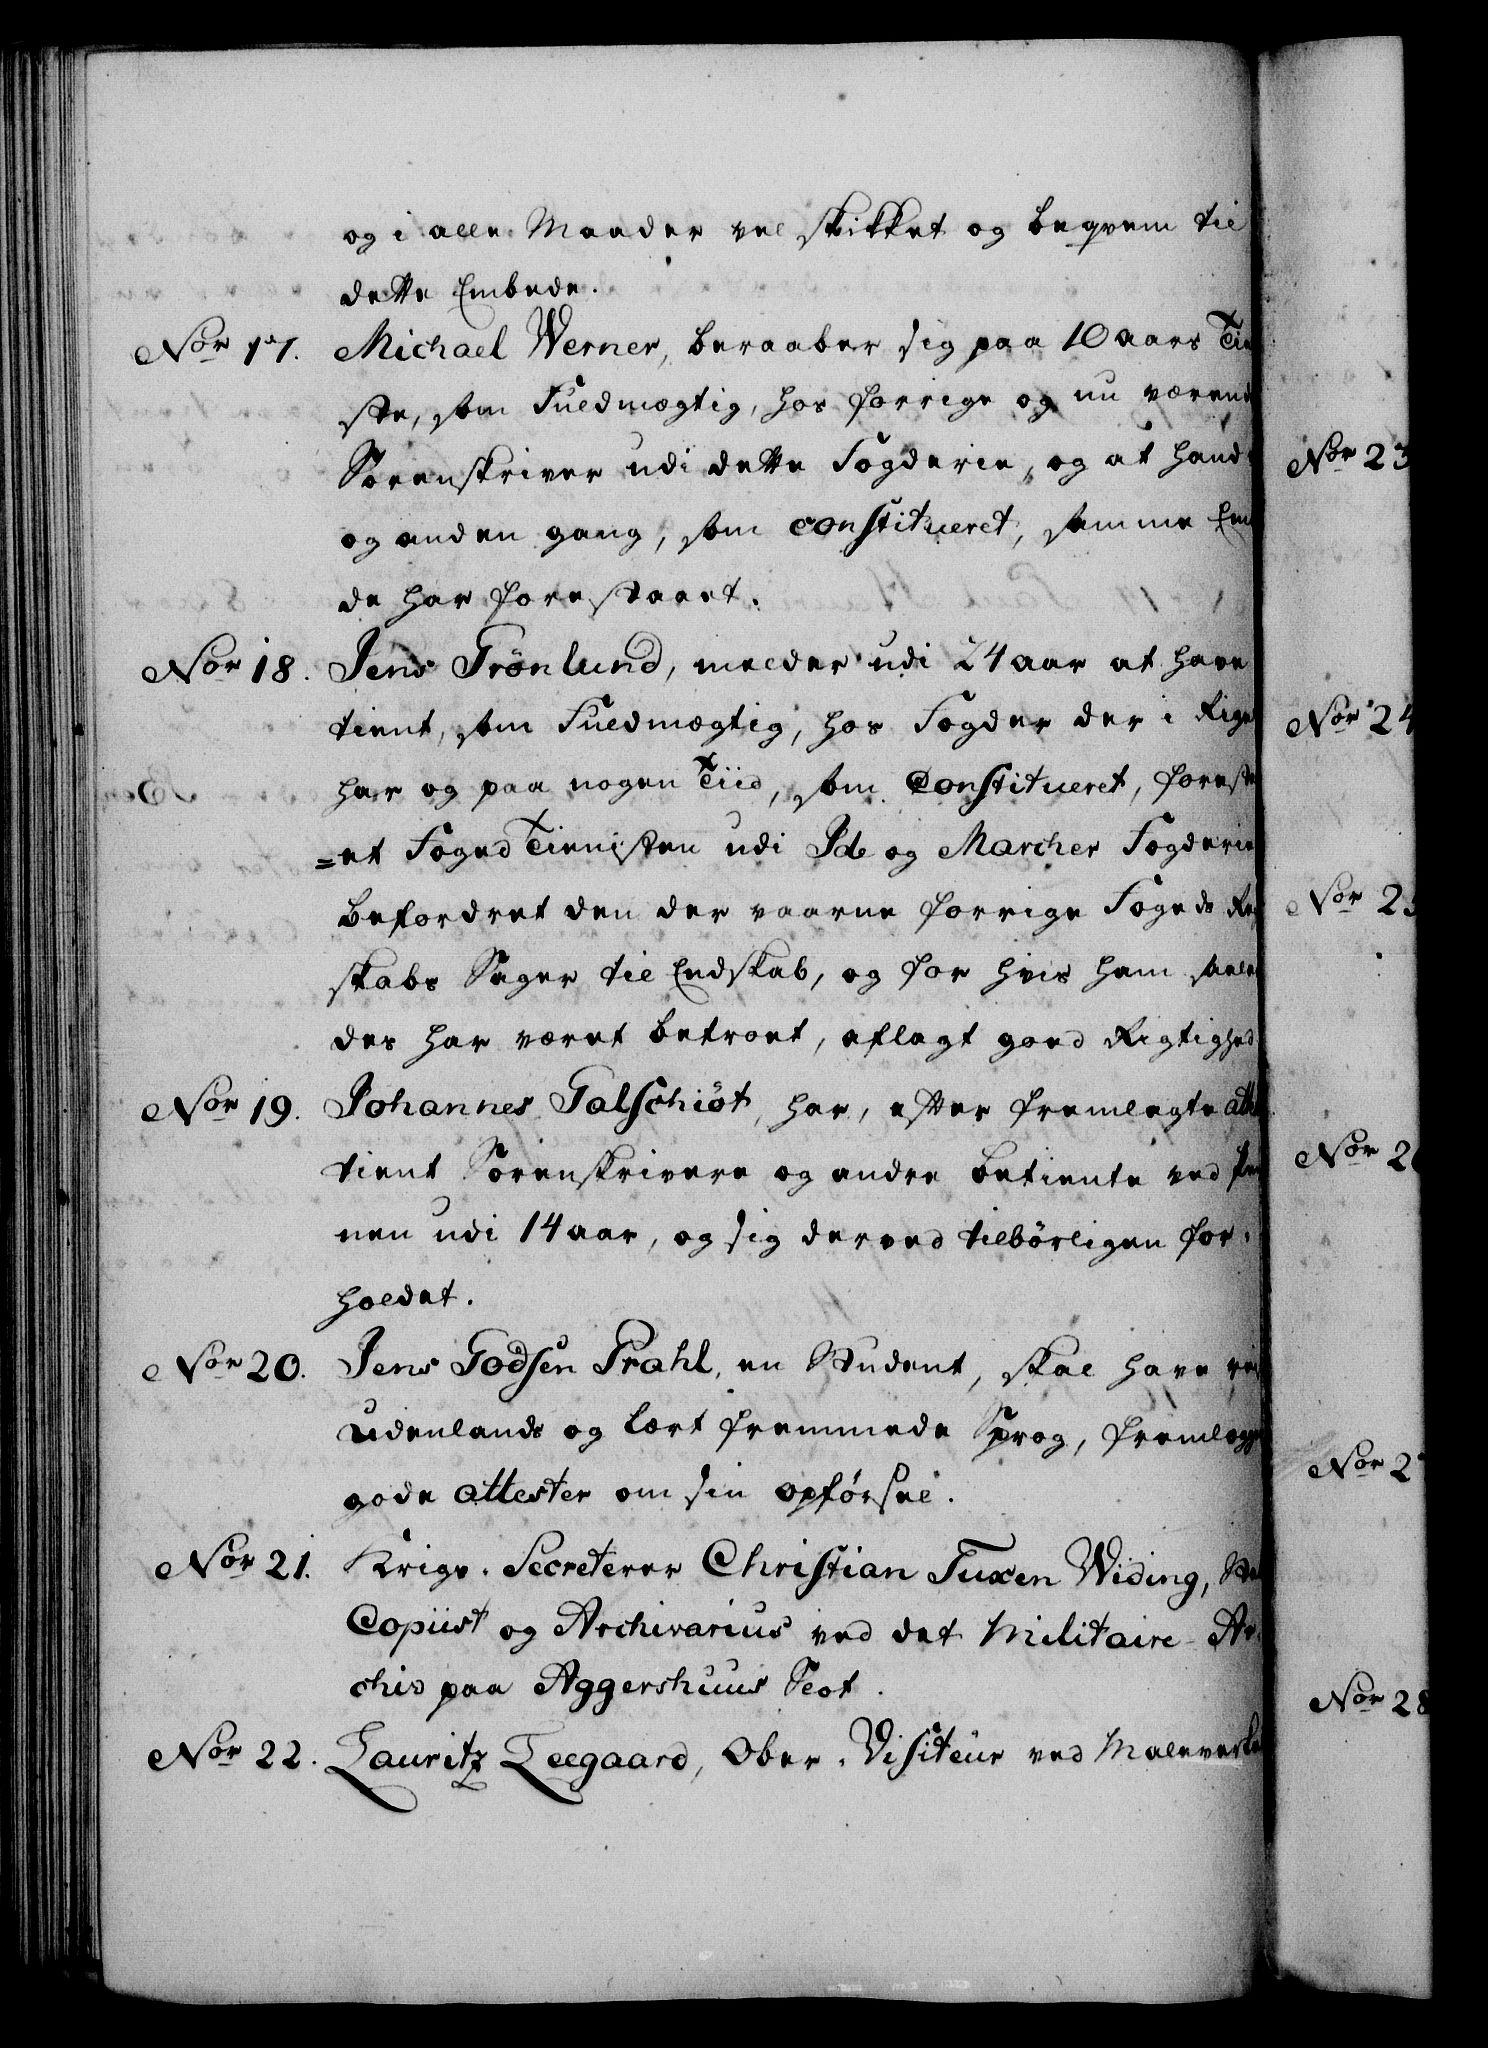 og i alle Maader vel skikket og beqvem til
dette Embede.
Nor 17. Michael Werner, beraaber sig paa 10 aars Tie
ste, som Fuldmægtig, hos forrige og nu værend
Sorenskriver udi dette Fogderie, og at hand
og anden gang, som constitueret, samme Em
de har forestaaet.
Nor 18. Jens Grönlund, melder udi 24 aar at have
tient, som Fuldmægtig, hos Fogder der i Riget
har og paa nogen Tiid, som Constitueret, foresta
=et Foged Tienisten udi Ide og Marcher Fogderie
befordret den der vaarne forrige Fogeds Reg
skabs Sager til Endskab, og for hvis ham saale
des har været betroet, aflagt goed Rigtighed
Nor 19. Johannes Galschiöt, har, efter fremlagte att
tient Sorenskrivere og andre betiente ved
nen udi 14 aar, og sig derved tilbörligen for-
holdet.
Nor 20. Jens Godsen Prahl, en Student, skal have rei
udenlands og lært fremmede Sprog, fremlægge
gode attester om sin opförsel.
Nor 21. Krigs-Secreterer Christian Tuxen Widing,
Copiist og Archivarius ved det Militaire Ar-
chiv paa Aggershuus Slot.
Nor 22. Lauritz Leegaard, Ober-Visiteur ved Maleverke
Nor 23
Nor 24
Nor 25
Nor 2
Nor 2
Nor 28